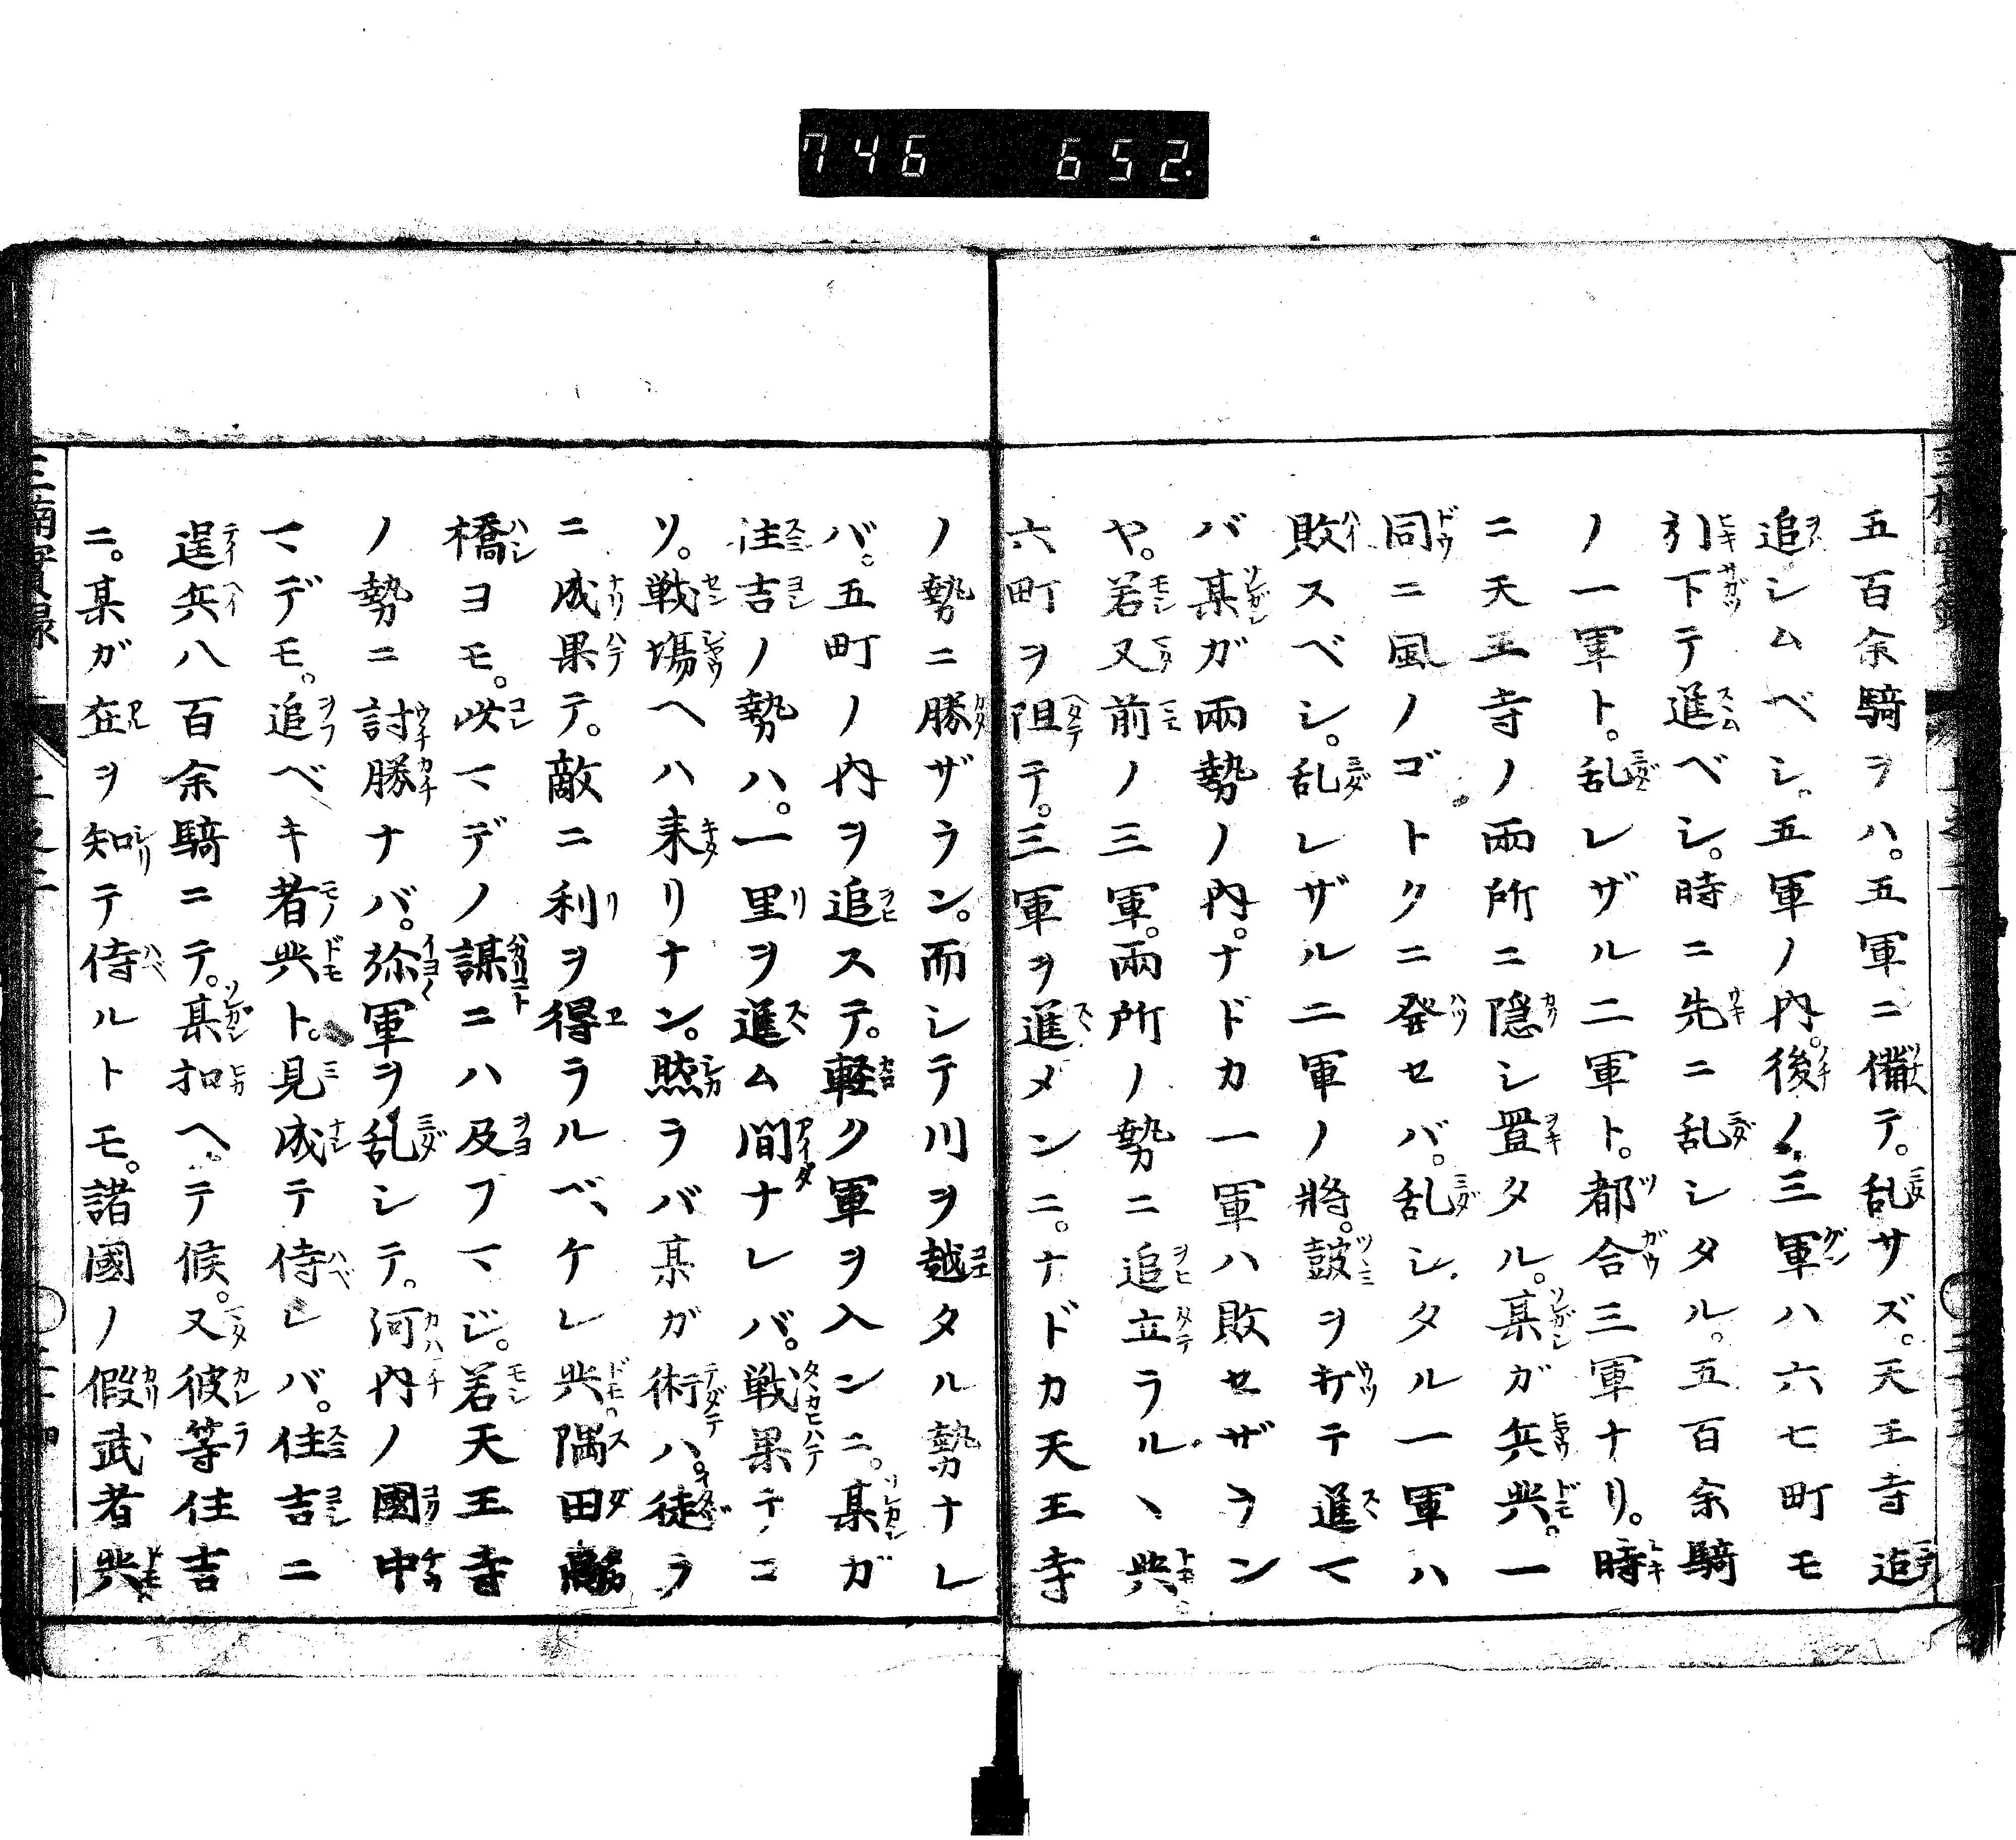 746 652.
五百余騎ヲハ。五軍ニ備テ。乱サズ。天王寺迄
追シムベシ。五軍ノ内。後ノ三軍ハ六七町モ
引下テ進ベシ。時ニ先ニ乱シタル。五百余騎
ノ一軍ト。乱レザル二軍ト。都合三軍ナリ。時
ニ天王寺ノ両所ニ隠シ置タル。某ガ兵共。一
同ニ風ノゴトクニ発セバ。乱シタル一軍ハ
敗スベシ。乱レザル二軍ノ將。鼓ヲ打テ進マ
バ某ガ兩勢ノ内。ナドカ一軍ハ敗セザラン
ヤ。若又前ノ三軍。兩所ノ勢ニ追立ラルヽ共。
六町ヲ阻テ。三軍ヲ進メンニ。ナドカ天王寺
ノ勢ニ勝ザラン。而シテ川ヲ越タル勢ナレ
バ。五町ノ内ヲ追ステ。軽ク軍ヲ入ンニ。某ガ
住吉ノ勢ハ。一里ヲ進ム間ナレバ。戦果テヽコ
ソ。戦場ヘハ来リナン。然ラバ某ガ術ハ。徒ラ
ニ成果テ。敵ニ利ヲ得ラルベケレ共。隅田高橋
橋ヨモ。此マデノ謀ニハ及フマジ。若天王寺
ノ勢ニ討勝ナバ。弥軍ヲ乱シテ。河内ノ國中
マデモ。追ベキ者共ト。見成テ侍レバ。住吉ニ
逞兵八百余騎ニテ。某扣ヘテ候。又彼等住吉
ニ。某ガ在ヲ知テ侍ルトモ。諸國ノ假武者共